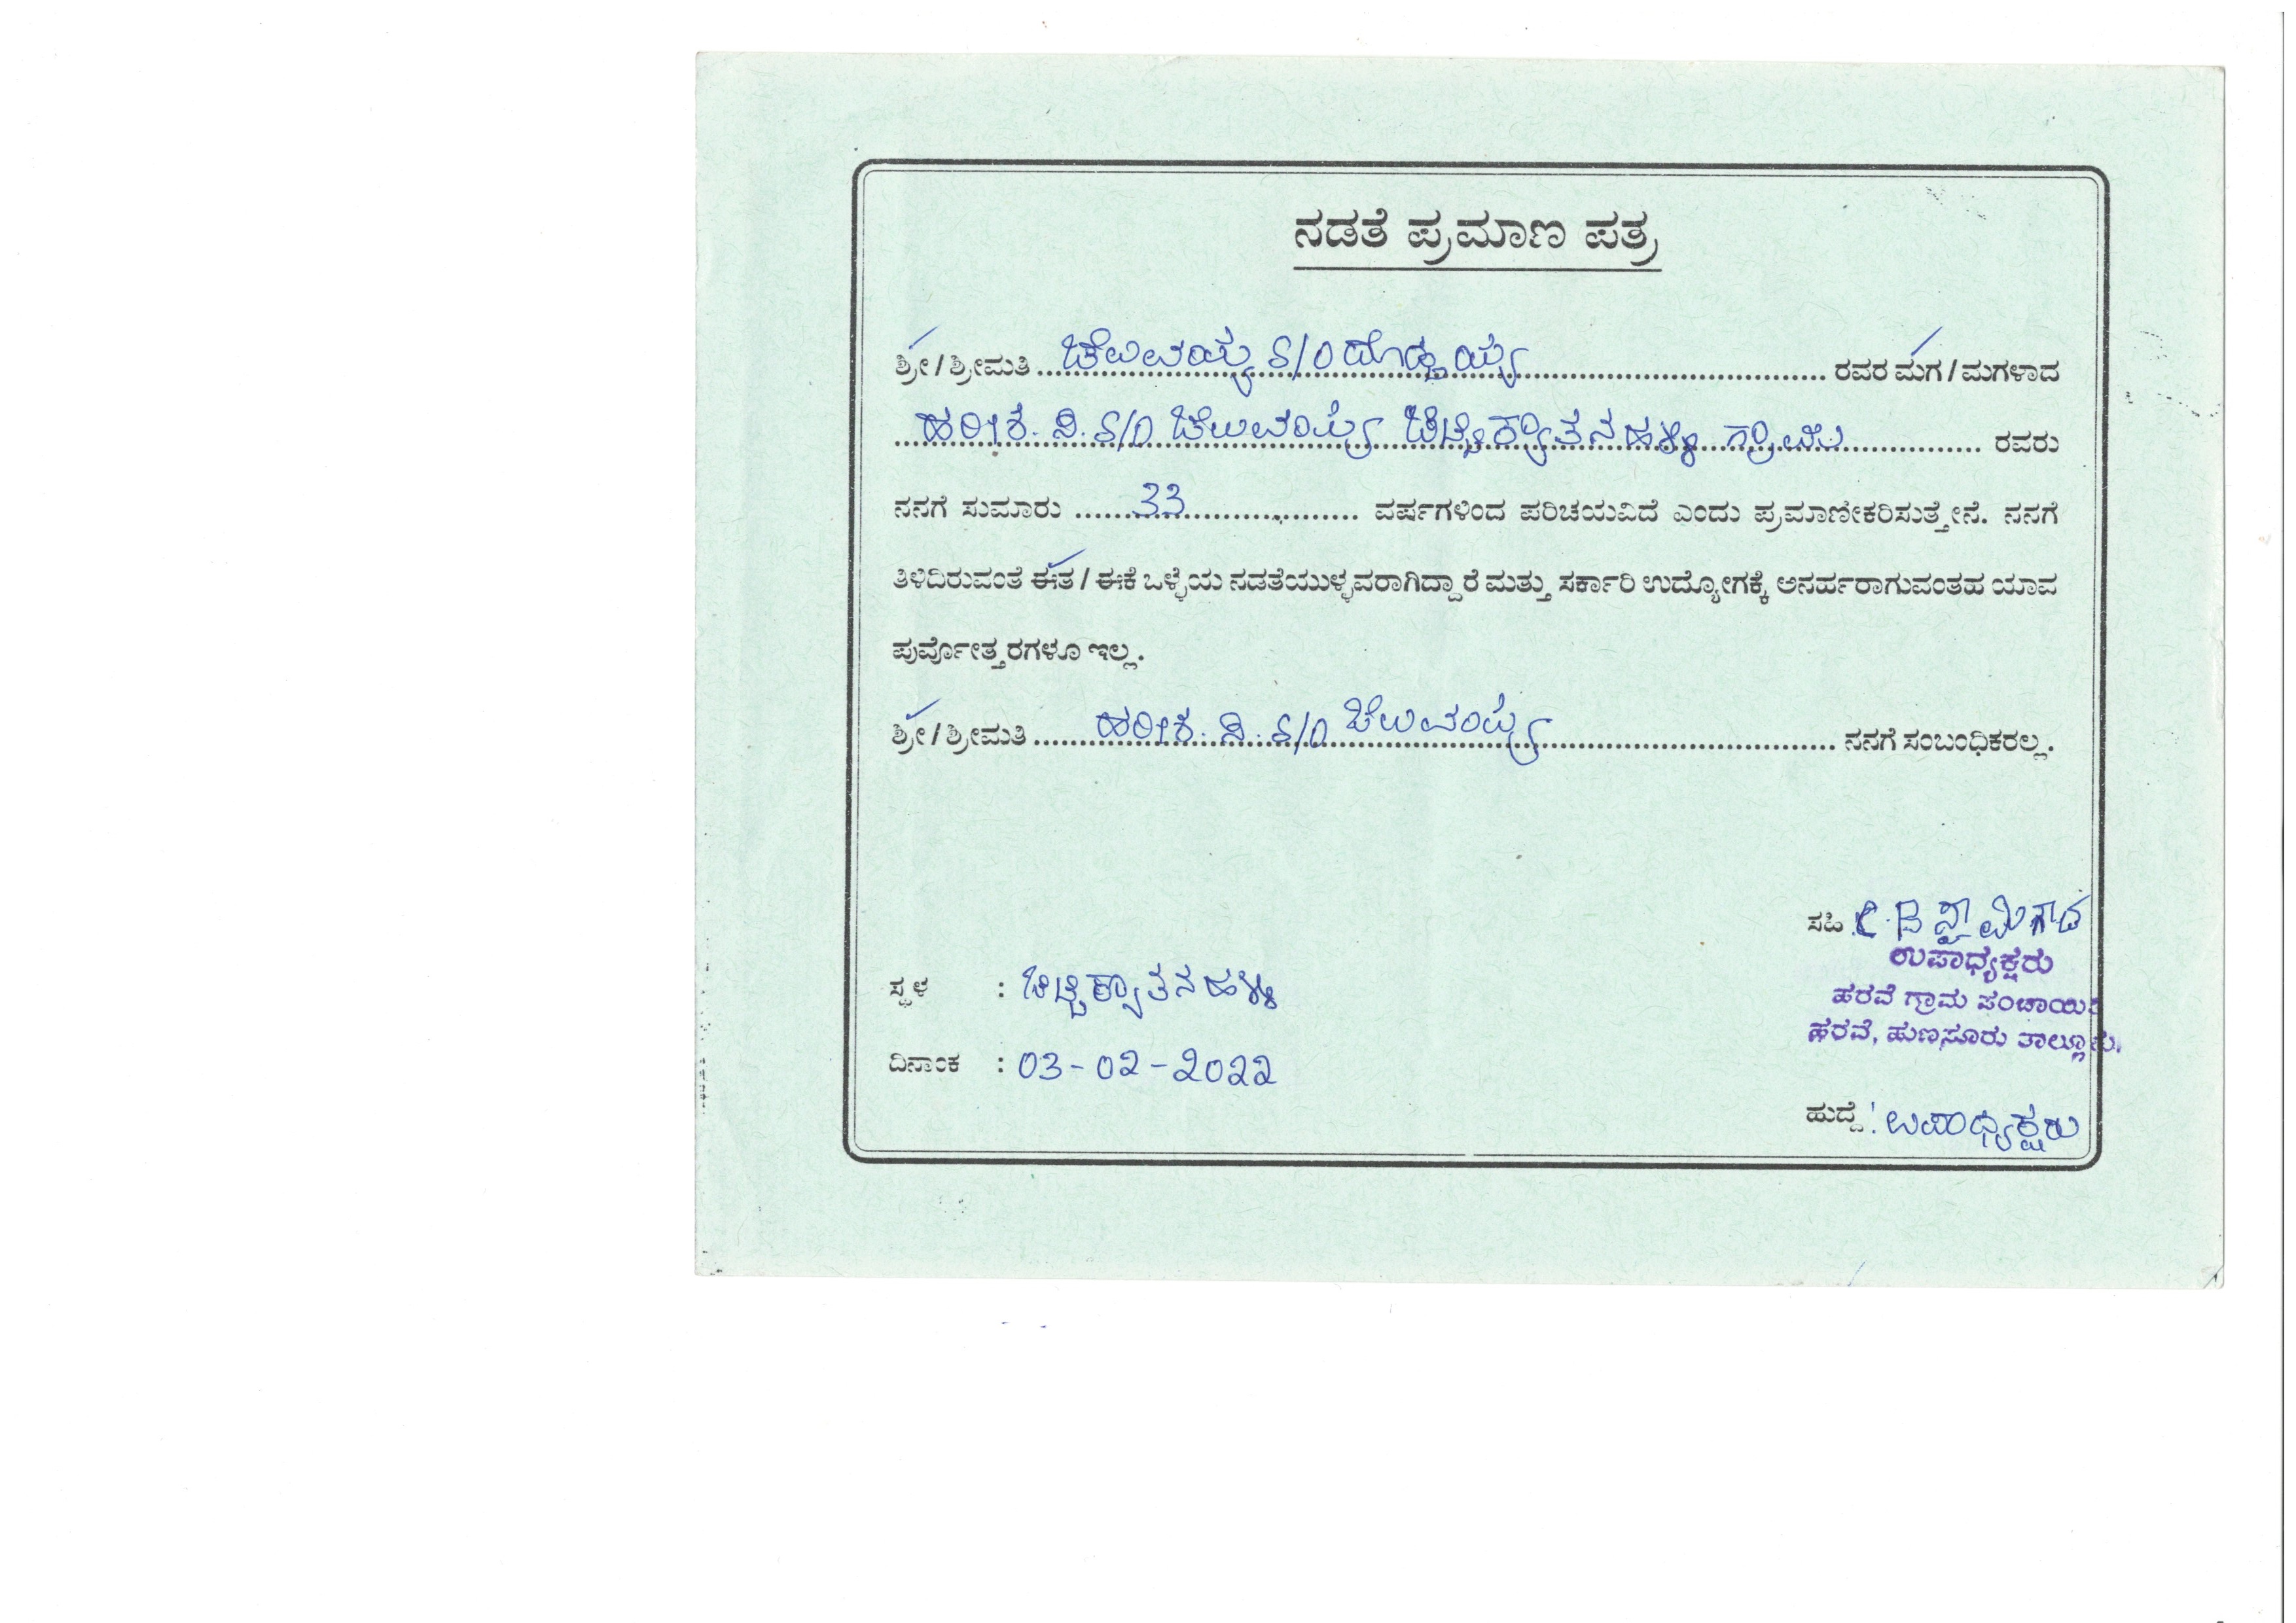 ನಡತೆ ಪ್ರಮಾಣ ಪತ್ರ
ಶ್ರೀ / ಶ್ರೀಮತಿ ಚೆಲುವಯ್ಯ S/O ದೊಡ್ಡಯ್ಯ ರವರ ಮಗ / ಮಗಳಾದ
ಹರೀಶ. ಸಿ. S/O ಚೆಲುವಯ್ಯ ಚಿಟ್ಟಕ್ಯಾತನಹಳ್ಳಿ ಗ್ರಾಮ ರವರು
ನನಗೆ ಸುಮಾರು 33 ವರ್ಷಗಳಿಂದ ಪರಿಚಯವಿದೆ ಎಂದು ಪ್ರಮಾಣೀಕರಿಸುತ್ತೇನೆ. ನನಗೆ
ತಿಳಿದಿರುವಂತೆ ಈತ / ಈಕೆ ಒಳ್ಳೆಯ ನಡತೆಯುಳ್ಳವರಾಗಿದ್ದಾರೆ ಮತ್ತು ಸರ್ಕಾರಿ ಉದ್ಯೋಗಕ್ಕೆ ಅನರ್ಹರಾಗುವಂತಹ ಯಾವ
ಪುರ್ವೋತ್ತರಗಳೂ ಇಲ್ಲ.
ಶ್ರೀ / ಶ್ರೀಮತಿ ಹರೀಶ. ಸಿ. S/O ಚೆಲುವಯ್ಯ ನನಗೆ ಸಂಬಂಧಿಕರಲ್ಲ.
ಸಹಿ
ಉಪಾಧ್ಯಕ್ಷರು
ಹರವೆ ಗ್ರಾಮ ಪಂಚಾಯಿತಿ
ಹರವೆ, ಹುಣಸೂರು ತಾಲ್ಲೂಕು.
ಸ್ಥಳ : ಚಿಟ್ಟಕ್ಯಾತನಹಳ್ಳಿ
ದಿನಾಂಕ : 03-02-2022
ಹುದ್ದೆ : ಉಪಾಧ್ಯಕ್ಷರು